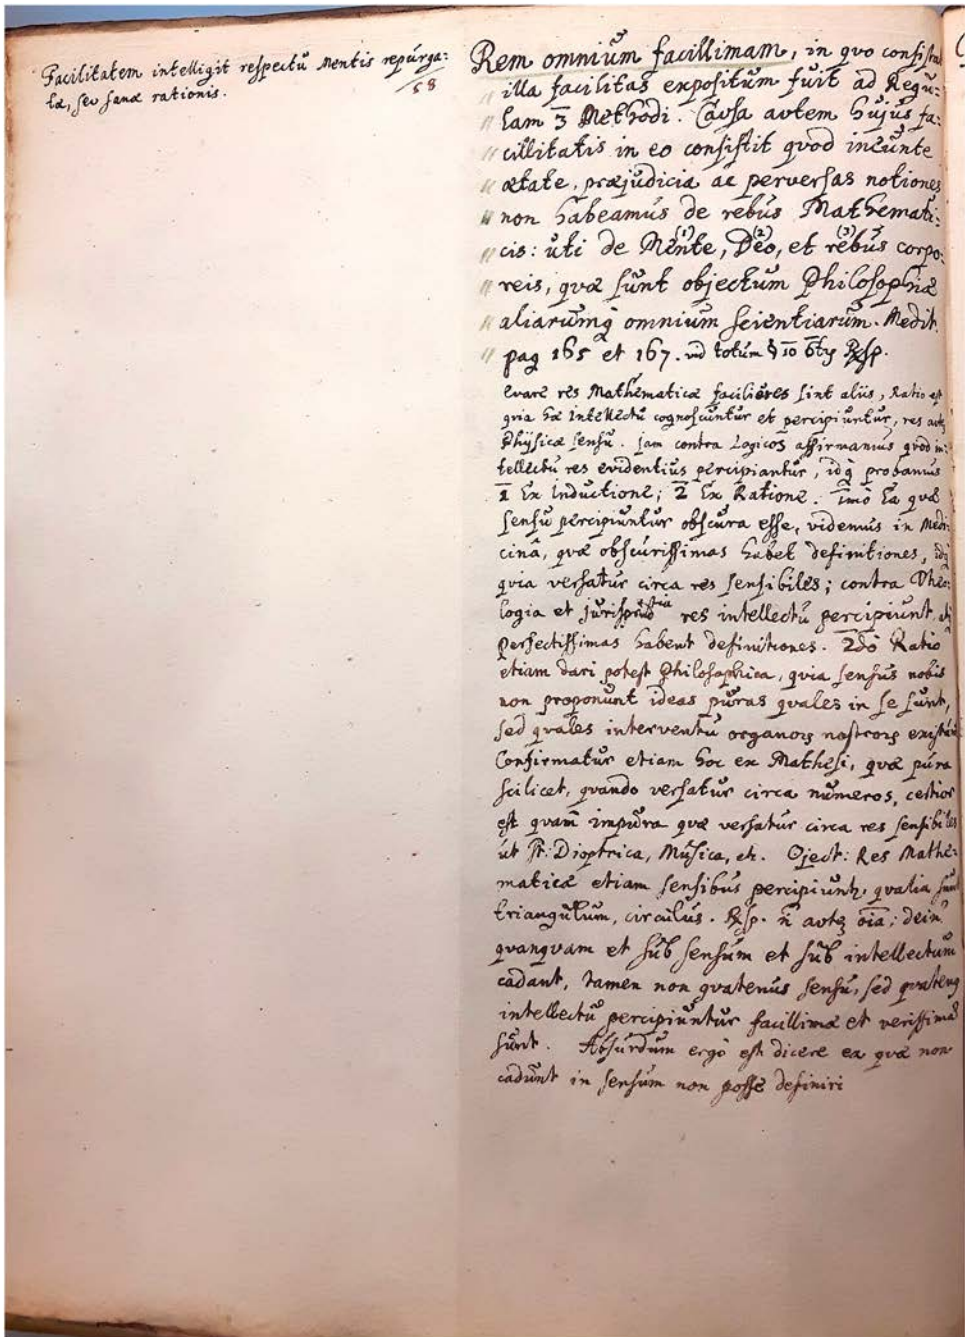 Facilitatem intelligit respectu Mentis repurga:
tæ, seu sanæ rationis.
58
Rem omnium facillimam, in quo consistat
illa facilitas expositum fuit ad Regu:
lam 3 Methodi. Causa autem hujus fa:
cillitatis in eo consistit quod ineunte
ætate, præjudicia ac perversas notiones
non habeamus de rebus Mathemati:
cis: uti de Mente, (1) Deo, (2) et rebus (3) corpo:
reis, quæ sunt objectum Philosophiæ
aliarumq omnium scientiarum. Medit.
pag 165 et 167. vid totum § 10 6tæ Resp.
res Mathematicæ faciliores sint aliis, Ratio est
quia hæ Intellectu cognoscuntur et percipiuntur, res autem
Physicæ sensu. Jam contra Logicos affirmamus quod in:
tellectu res evidentius percipiantur, idq probamus
1 Ex Inductione; 2 Ex Ratione. imò Ea quæ
sensu percipiuntur obscura esse, videmus in Medi:
cinâ, quæ obscurissimas habet definitiones, idq
quia versatur circa res sensibiles; contra Theo:
logia et jurisprudentia res intellectu percipiunt,
perfectissimas habent definitiones. 2dò Ratio
etiam dari potest Philosophica, quia sensus nobis
non proponunt ideas puras quales in se sunt,
sed quales interventu organorum nostrorum
Confirmatur etiam hoc ex Mathesi, quæ pura
scilicet, quando versatur circa numeros, certior
est quam impura quæ versatur circa res sensibiles
ut Dioptrica, Musica, etc. Oject: Res Mathe:
maticæ etiam sensibus percipiunt, qualia sunt
triangulum, circulus. Resp. ñ autem oia; dein
quanquam et sub sensum et sub intellectum
cadant, tamen non quatenus sensu, sed quatenus
intellectu percipiuntur facillimæ et verissimæ
sunt. Absurdum ergò est dicere ea quæ non
cadunt in sensum non posse definiri